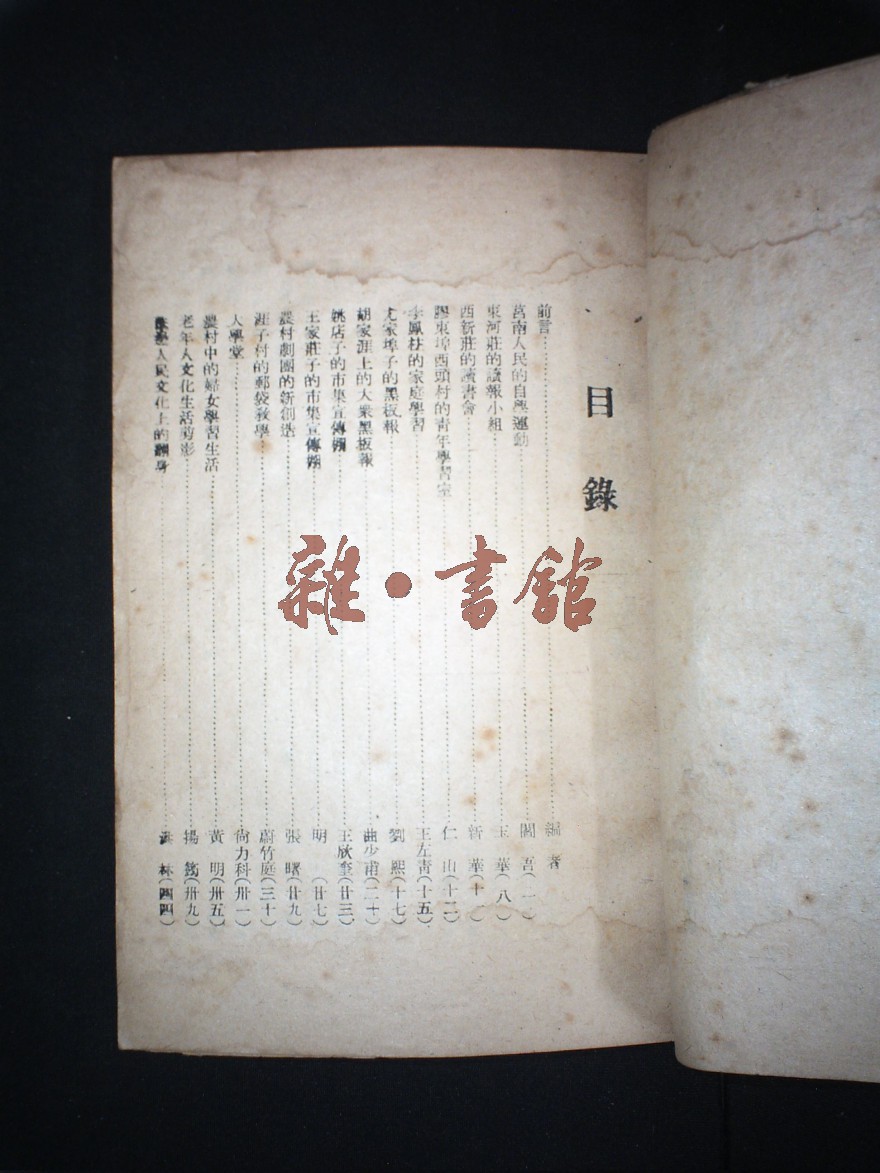 目錄
前言 編者
莒南人民的自學運動 閻吾(一)
東河莊的讀報小組 王華(八)
西新莊的讀書會 新華(十一)
膠東埠西頭村的青年學習室 仁山(十二)
李鳳枝的家庭學習 王左青(十五)
尤家埠子的黑板報 劉熙(十七)
胡家涯上的大衆黑板報 曲少甫(二十)
姚店子的市集宣傳棚 王欣奎(廿三)
王家莊子的市集宣傳棚 明(廿七)
農村劇團的新創造 張曙(廿九)
涯子村的郵袋敎學 蔚竹庭(三十)
大學堂 尙力科(卅一)
農村中的婦女學習生活 黃明(卅五)
老年人文化生活剪影 揚筠(卅九)
人民文化上的翻身 林(四四)
雜·書館